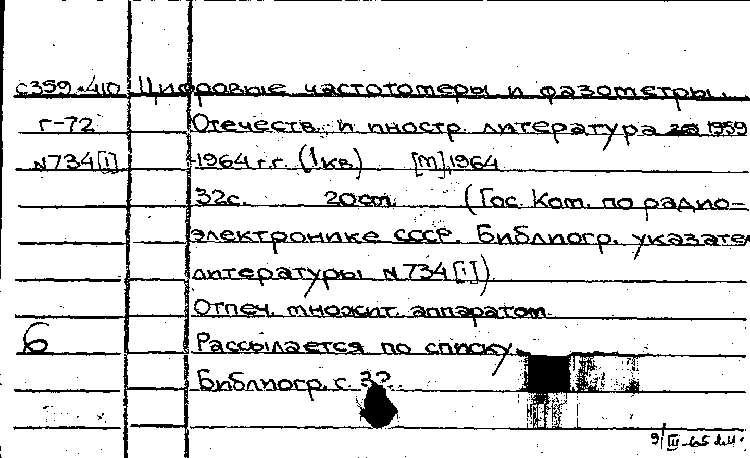 с359•410 Цифровые частотомеры и фазометры.
Г-72 Отечеств. и иностр. литература за 1959
N734[i] -1964 г.г. (I кв) [М], 1964
32с. 20cm. (Гос. Ком. по радио-
электронике СССР. Библиогр. указател
литературы N734[i])
Отпеч. множит. аппаратом
6 Рассылается по списку.
Библиогр. с. 32.